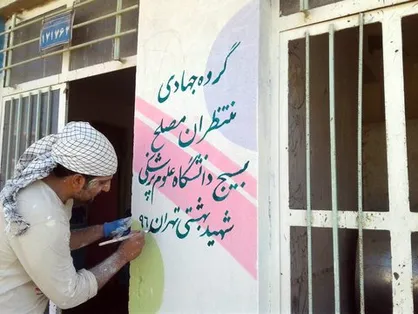 ۱۲۱۷۶۲
گروه جهادی
منتظران مصلح
بسیج دانشگاه علوم پزشکی
شهید بهشتی تهران ۹۶